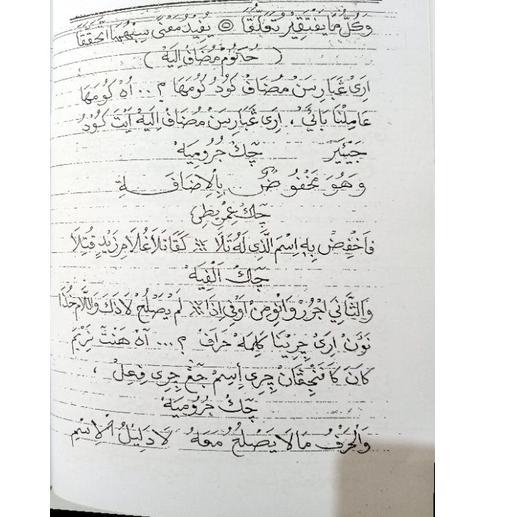 وَكُلُّ مَا يَفْتَقِرُ تَعَلُّقًا ۞ يُفِيْدُ مَعْنًى بِهِمَا تَحَقَّقَا
( حُكُوْم مُضَافْ اِلَيْهْ )
اَرَى عْبَارَسَنْ مُضَافْ كَوْدُ كُوْمَهَا ؟ ... اُهْ كُوْمَهَا
عَامِلْنَا بَائَيْ، اَرَى عْبَارَسَنْ مُضَافْ اِلَيْهْ اَيْتَ كَوْدُ
جَيْئَيْرْ چَكْ جُرُوْمِيَهْ
وَهُوَ مَخْفُوْضٌ بِالْاِضَافَةِ
چَكْ عِمْرِيْطِيْ
فَاخْفِضْ بِهِ اِسْمَ الَّذِيْ لَهُ تَلَا ۞ كَقَاتِلَا غُلَامِ زَيْدٍ قُتِلَا
چَكْ اَلْفِيَهْ
وَالثَّانِيَ اجْرُرْ وَانْوِ مِنْ اَوْفِيْ اِذَا ۞ لَمْ يَصْلُحْ اِلَّا ذَاكَ وَاللَّامَ خُذَا
نَوْنْ اَرَى چِرِيْنَا كَلِمَهْ حَرَافْ ؟ ... اَهْ هَنْتَ تَرِيْمَ
كَانَ كَا فَنْجِڤَانْ چِرِيْ اِسْمْ جَڠْ چِرِيْ فِعِلْ،
چَكْ جُرُوْمِيَهْ
وَالْحَرْفُ مَا لَا يَصْلُحُ مَعَهُ لَا دَلِيْلُ الْاِسْمِ